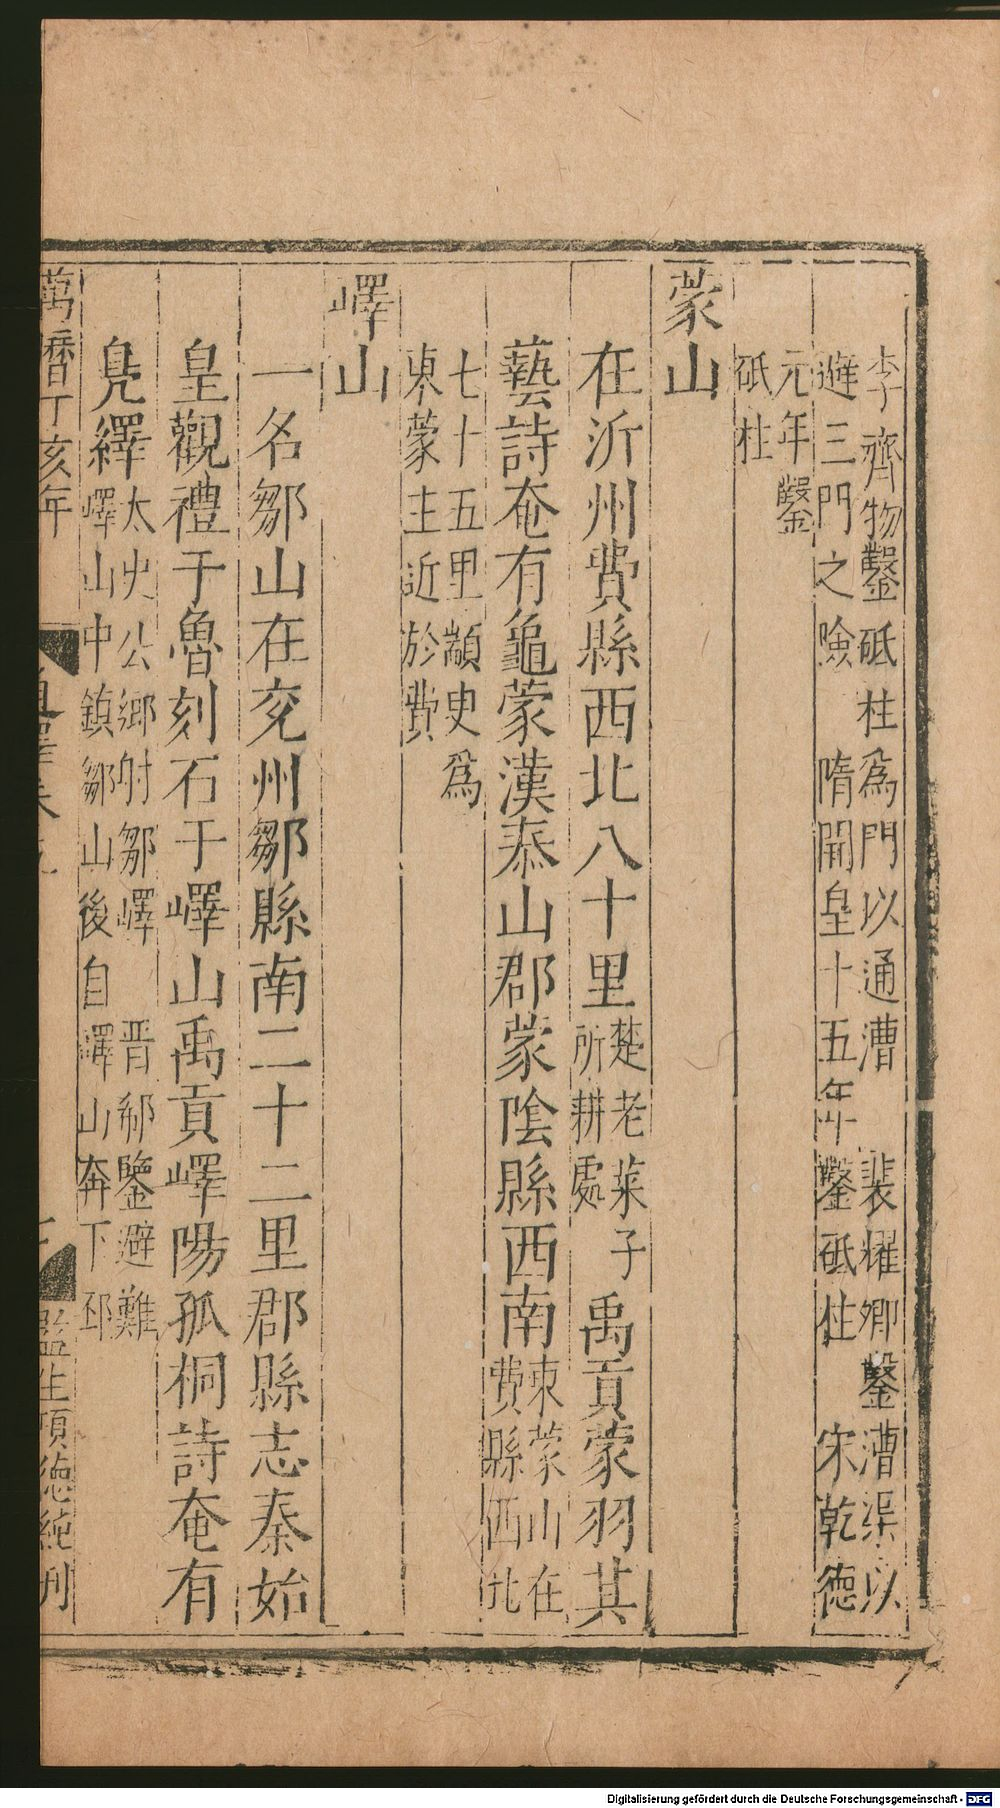 李齊物鑿砥柱爲門以通漕　裴耀卿鑿漕渠以
避三門之險　隋開皇十五年鑿砥柱　宋乾德
元年鑿
砥柱
蒙山
在沂州費縣西北八十里楚老萊子所耕處禹貢蒙羽其
藝詩奄有龜蒙漢泰山郡蒙陰縣西南東蒙山在費縣西北
七十五里顓史爲
東蒙主近於費
嶧山
一名鄒山在兗州鄒縣南二十二里郡縣志秦始
皇觀禮于魯刻石于嶧山禹貢嶧陽孤桐詩奄有
鳧繹太史公鄉射鄒嶧　晉郗鑒避難
嶧山中鎮鄒山後自嶧山奔下邳
萬曆丁亥年
監生項德純刊
Digitalisierung gefördert durch die Deutsche Forschungsgemeinschaft - DFG